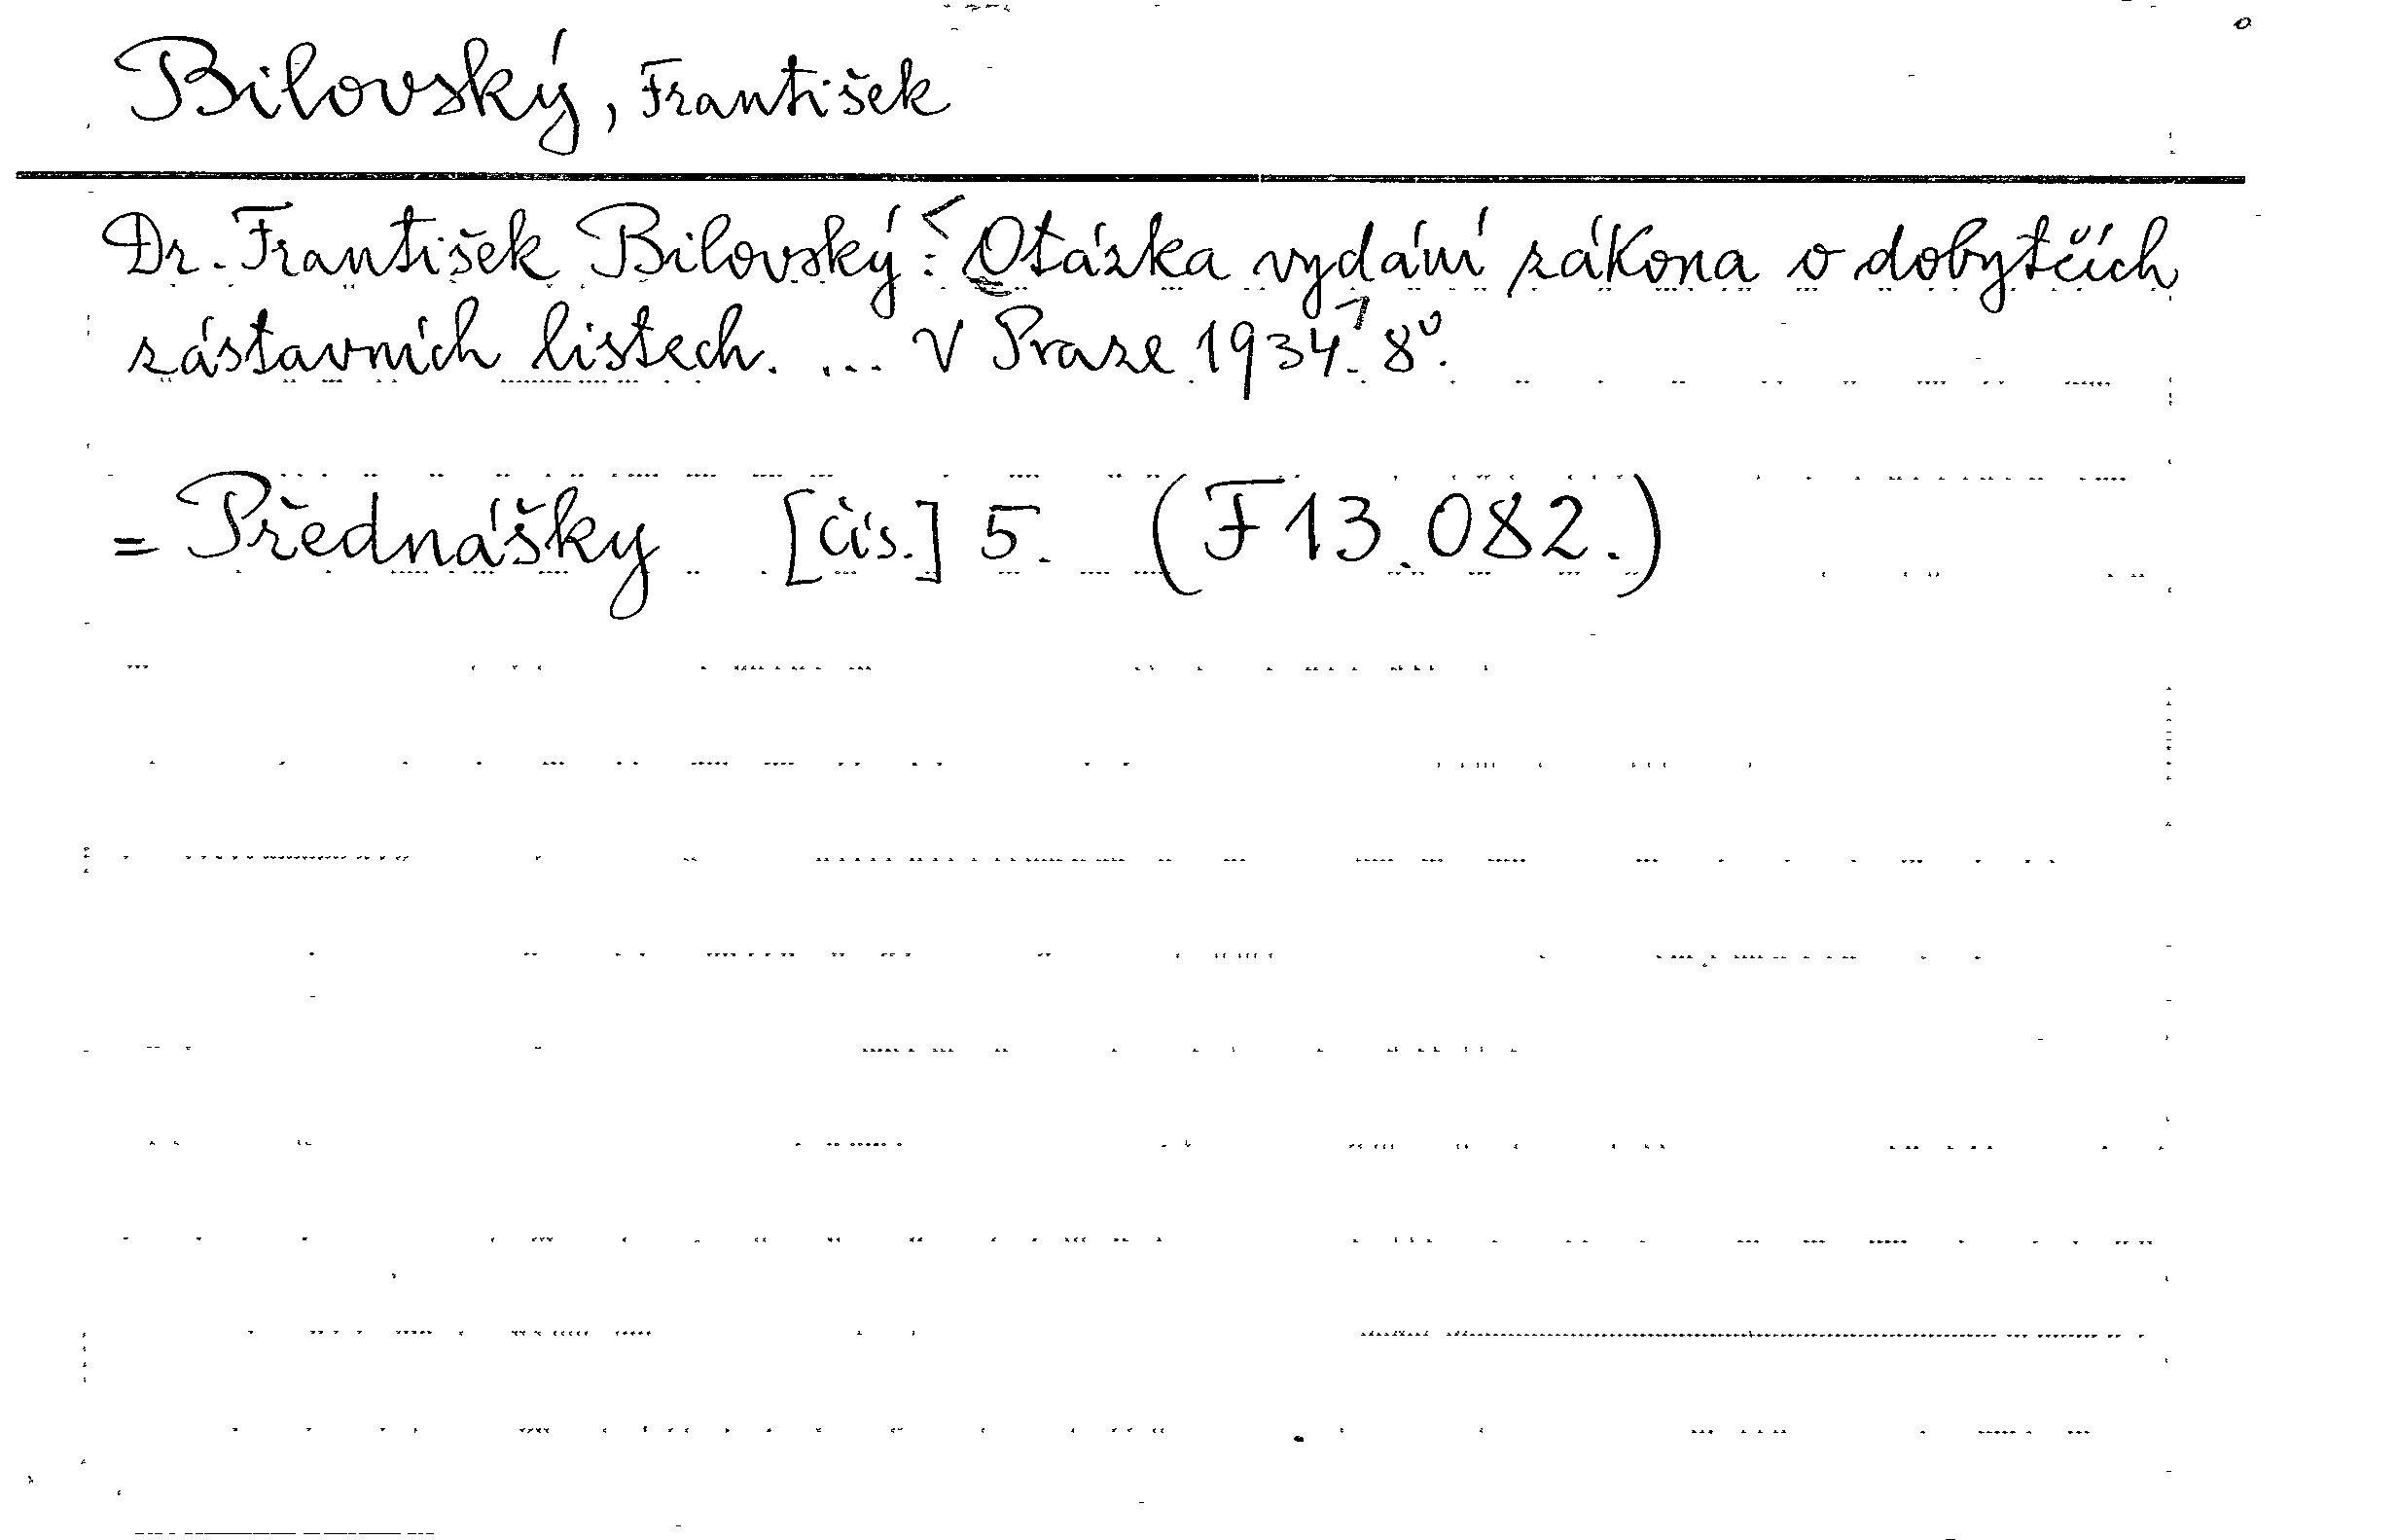 Bilovský, František
Dr. František Bilovský: Otázka vydání zákona o dobytčích
zástavních listech. ... V Praze 1934. 8°.
= Přednášky [čís.] 5. (F 13.082.)